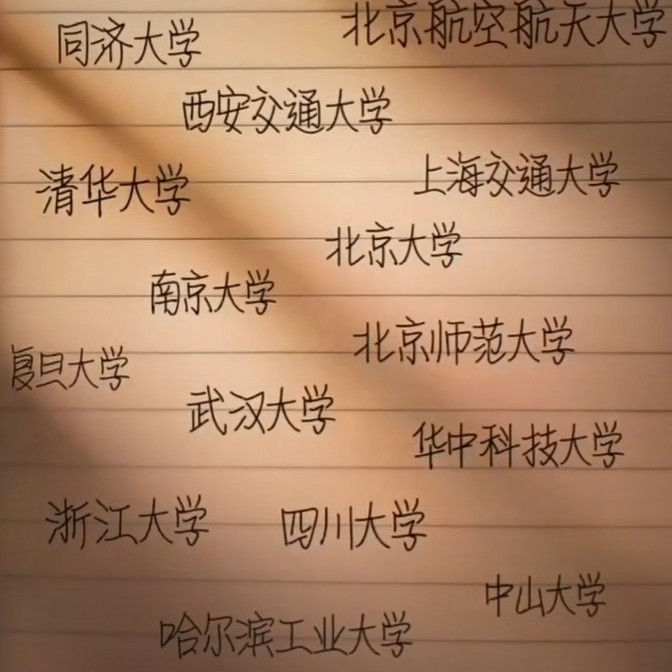 同济大学
北京航空航天大学
西安交通大学
清华大学
上海交通大学
北京大学
南京大学
北京师范大学
复旦大学
武汉大学
华中科技大学
浙江大学
四川大学
中山大学
哈尔滨工业大学